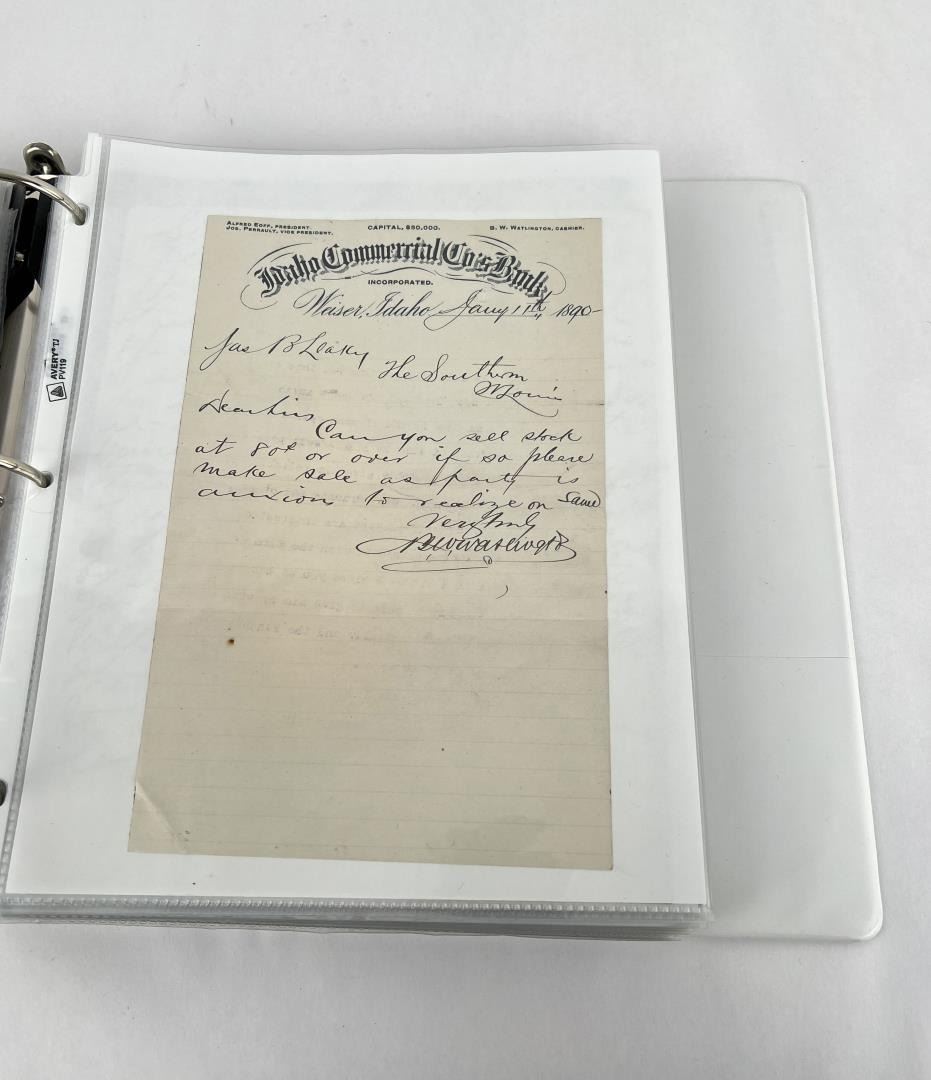 ALFRED EOFF, PRESIDENT.
JOS. PERRAULT, VICE PRESIDENT.
CAPITAL, $50,000.
B. W. WATLINGTON, CASHIER.
Idaho Commercial Co's Bank,
INCORPORATED.
Weiser, Idaho Jany 11th 1890-
Jas B Leaky
The Southern
Dear Sir,
Can you sell stock
at 80¢ or over if so please
make sale as party is
anxious to realize on Same
Very Truly
B.W. Watlington
AVERY® TJ
PV119